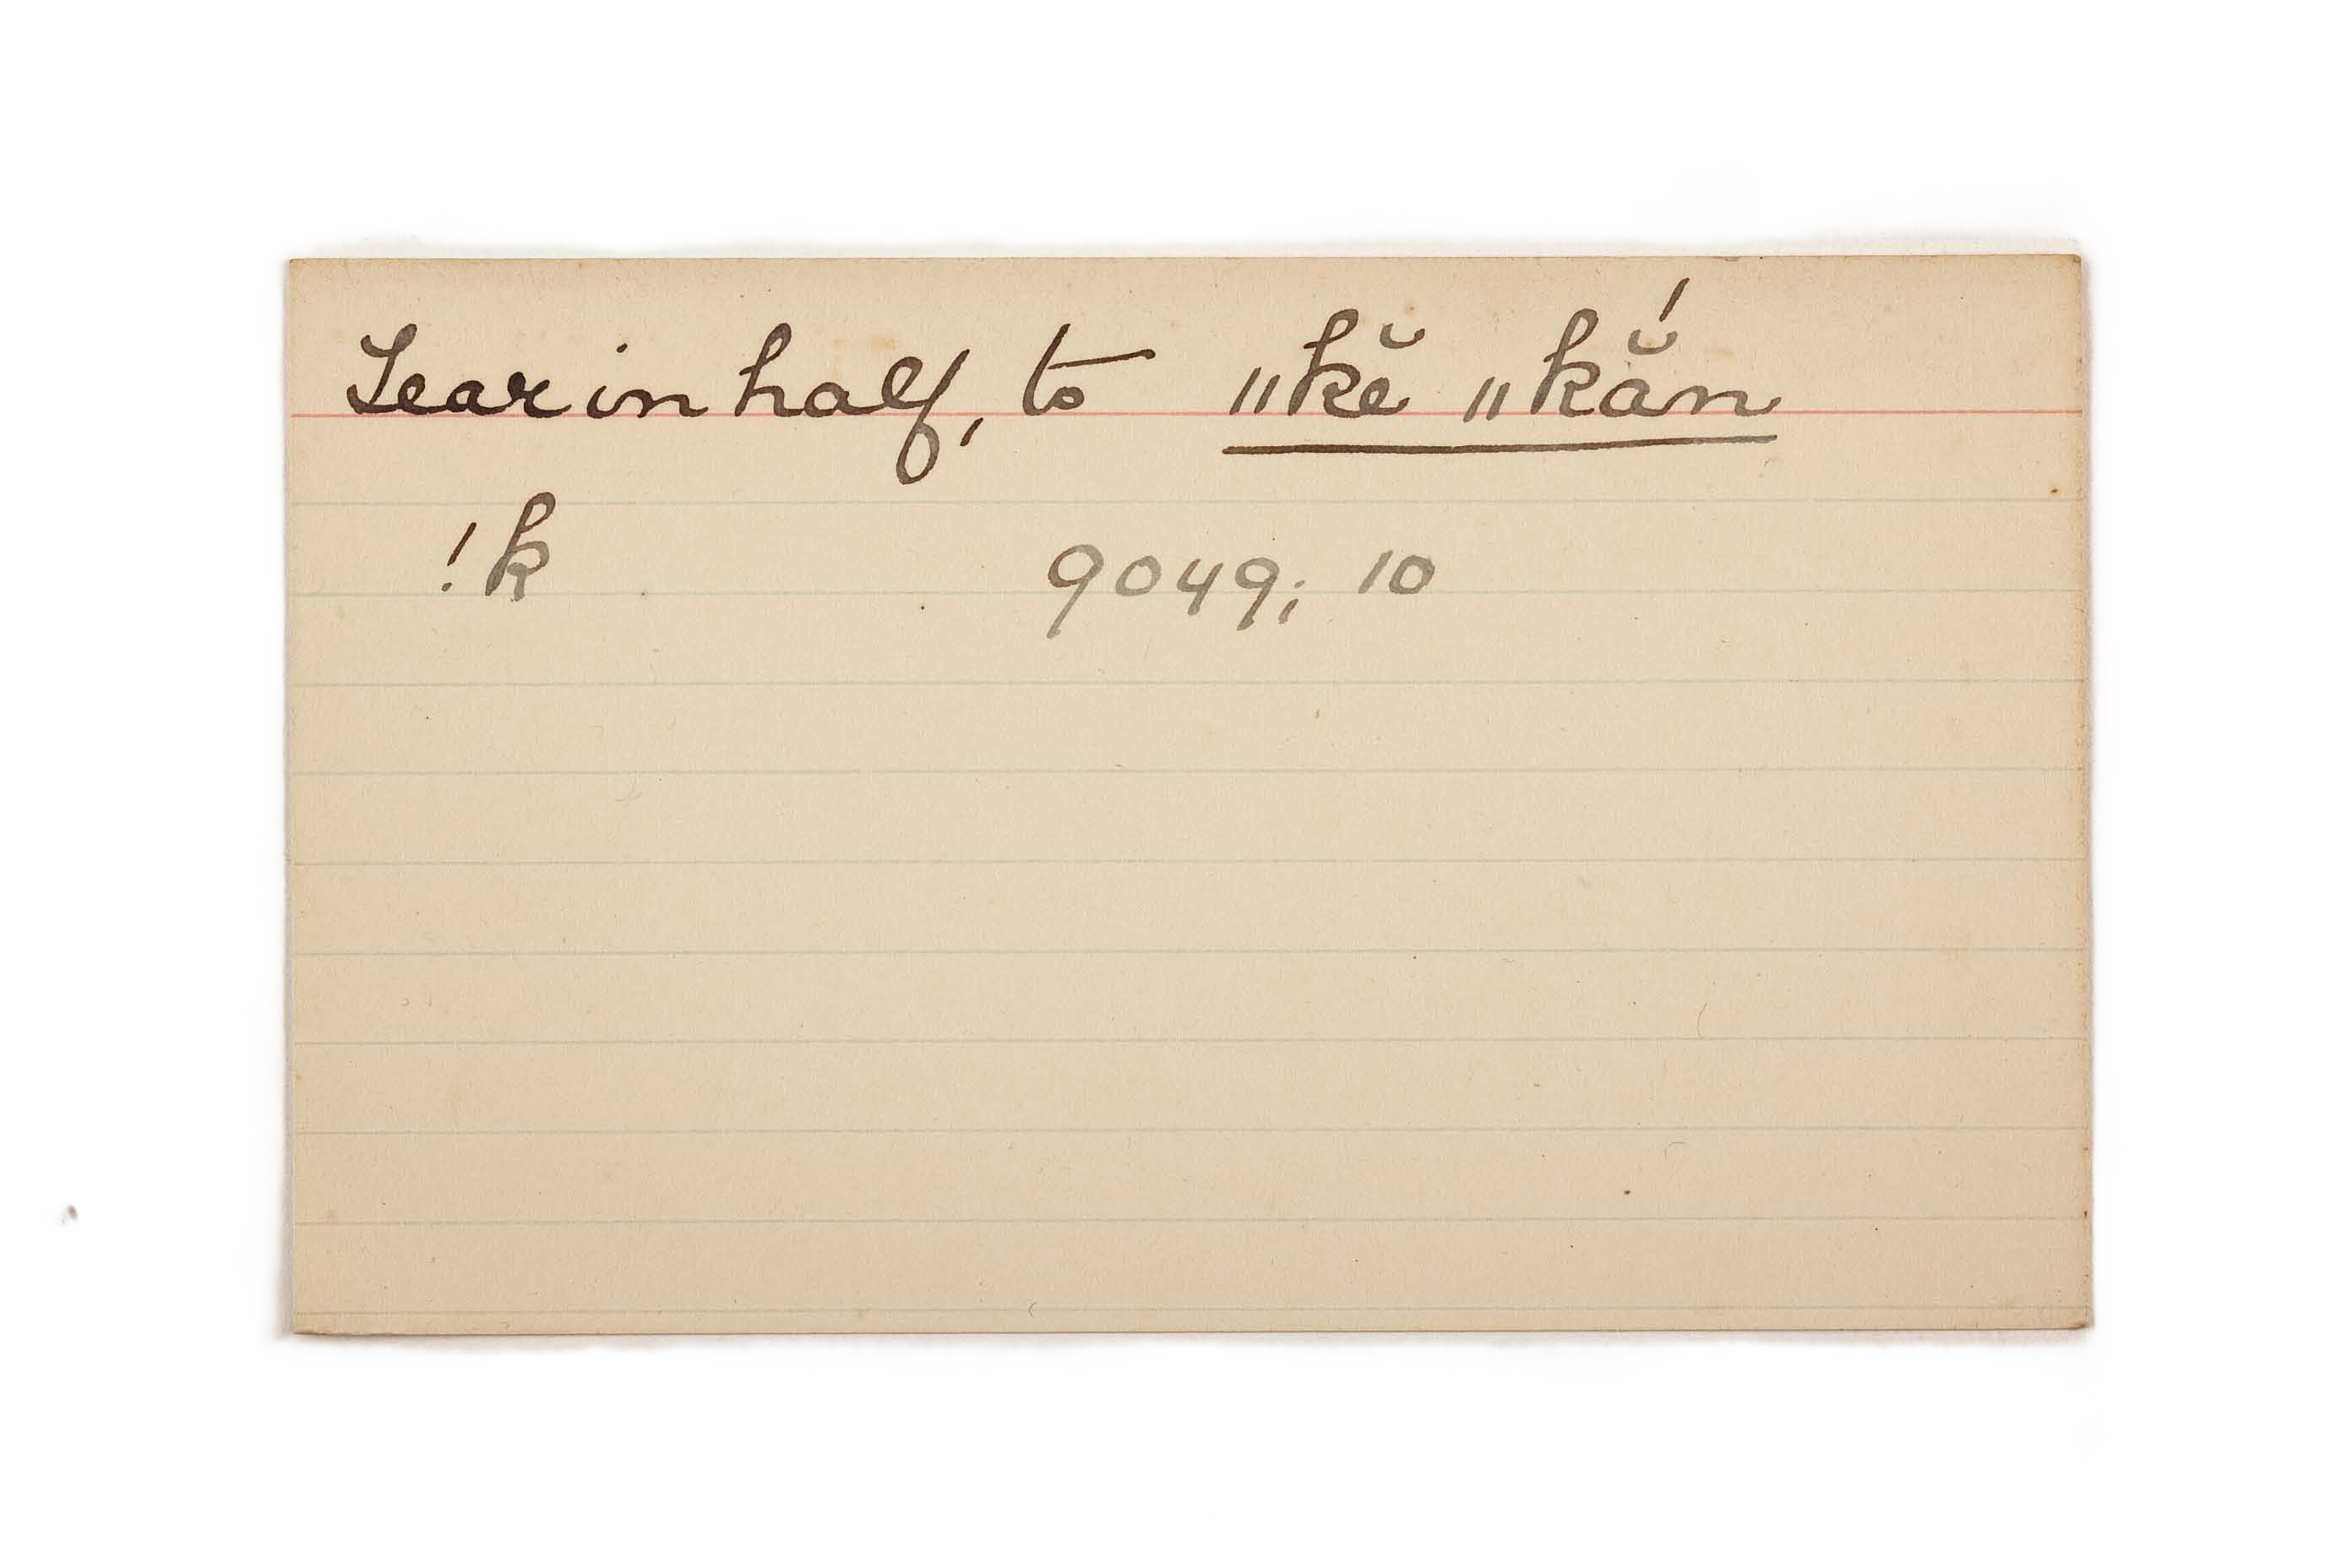 Tear in half, to ǁkĕ ǁkắn
!k 9049; 10